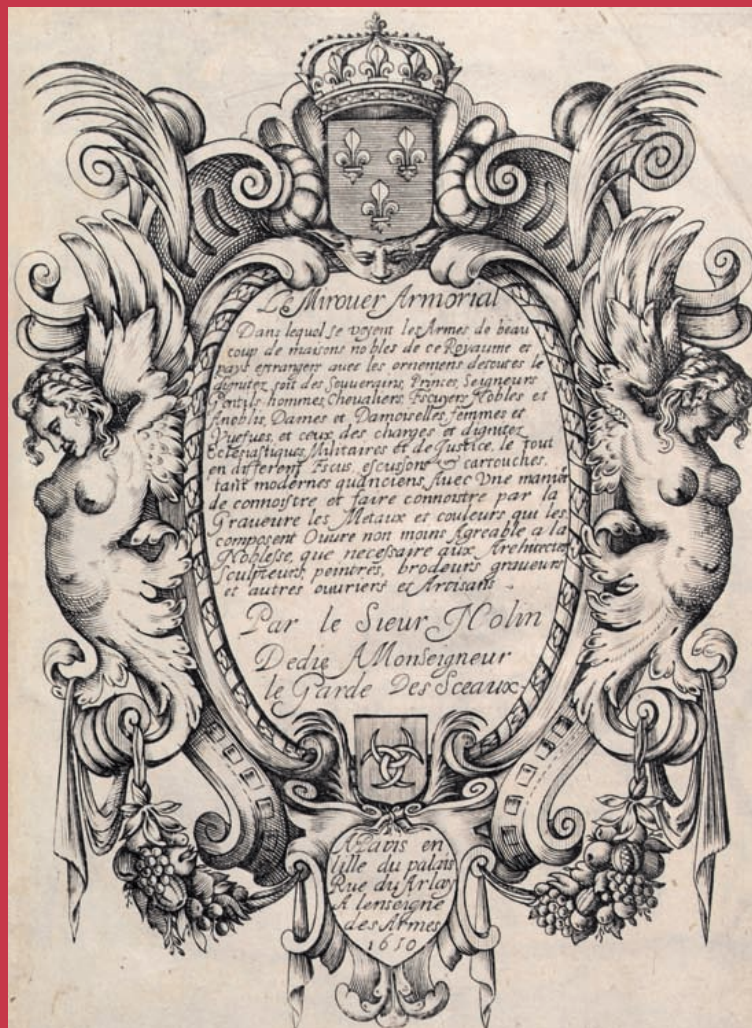 Le Mirouer Armorial
Dans lequel se voyent les Armes de beau
coup de maisons nobles de ce Royaume et
pays etrangers auec les ornemens detoutes le
dignitez soit des Souuerains, Princes, Seigneurs
Gentils-hommes, Chevaliers, Escuyers Nobles et
Anoblis, Dames et Damoiselles, femmes et
Vuefues, et ceux des charges et dignitez
Eclesiastiques, Militaires et de Justice, le tout
en different Escus, escussons & cartouches,
tant modernes qu'anciens, Auec Vne manier
de connoistre et faire connoistre par la
Graueure les Metaux et couleurs qui les
composent Ouure non moins Agreable a la
Noblesse, que necessaire aux Architectes
Sculpteurs, peintres, brodeurs graueurs
et autres ouuriers et Artisans.
Par le Sieur Nolin
Dedie A Monseigneur
le Garde Des Sceaux
A Paris en
lille du palais
Rue du Arlay
A lenseigne
des Armes
1650